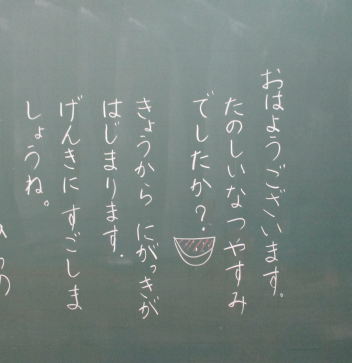 おはようございます。
たのしいなつやすみ
でしたか？
きょうから にがっきが
はじまります.
げんきに すごしま
しょうね。